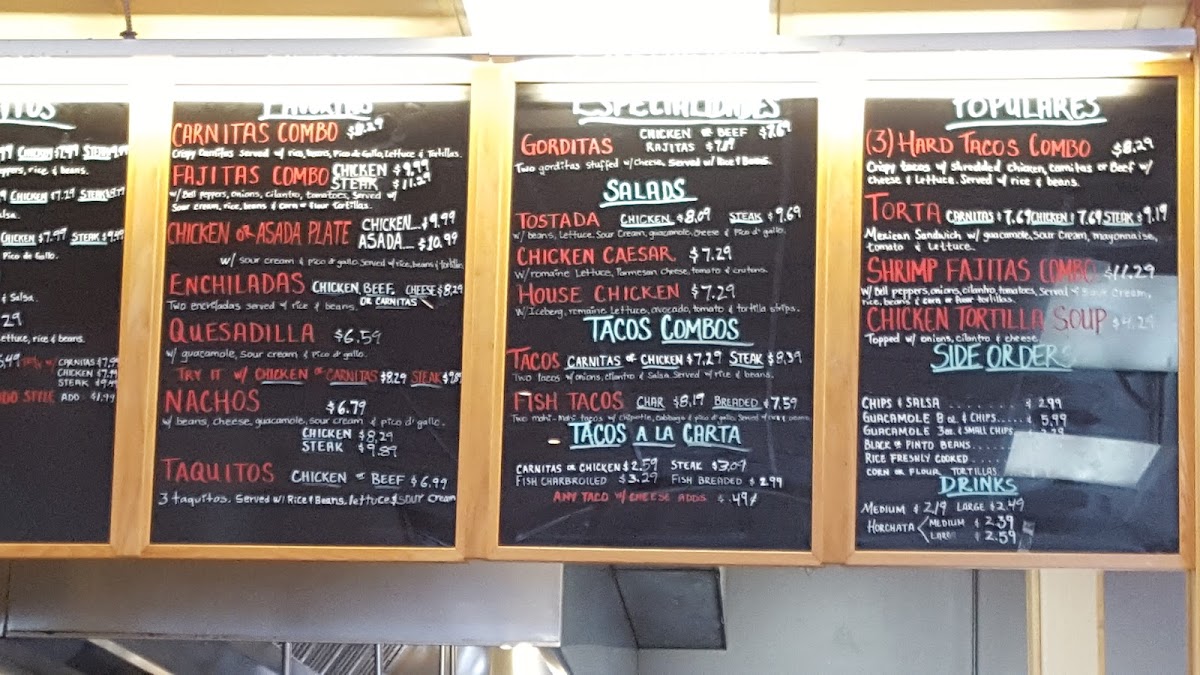 CHICKEN $7.99 STEAK
rice & beans.
CHICKEN $7.29 STEAK
CHICKEN $7.99 STEAK $9.99
Pico de Gallo.
& Salsa.
Lettuce, rice & beans.
CARNITAS
CHICKEN
STEAK
STYLE ADD $1.99
FAVORITOS
CARNITAS COMBO $8.29
Crispy Carnitas Served w/ rice, beans, Pico de Gallo, Lettuce & Tortillas.
FAJITAS COMBO CHICKEN $9.99
STEAK $11.29
w/ Bell peppers, onions, cilantro, tomatoes, Served w/
Sour cream, rice, beans & corn or flour tortillas.
CHICKEN OR ASADA PLATE CHICKEN...$9.99
ASADA...$10.99
w/ sour cream & Pico d' gallo Served w/ rice, beans & tortillas
ENCHILADAS CHICKEN, BEEF, CHEESE $8.29
OR CARNITAS
Two enchiladas served w/ rice & beans.
QUESADILLA $6.59
w/ guacamole, sour cream & Pico d' gallo.
TRY IT w/ CHICKEN OR CARNITAS $8.29 STEAK
NACHOS $6.79
w/ beans, cheese, guacamole, sour cream & pico d' gallo.
CHICKEN $8.29
STEAK $9.89
TAQUITOS CHICKEN OR BEEF $6.99
3 taquitos. Served w/ Rice & Beans, lettuce & sour cream
ESPECIALIDADES
GORDITAS CHICKEN OR BEEF $8.69
RAJITAS $7.89
Two gorditas stuffed w/ Cheese, Served w/ Rice & Beans.
SALADS
TOSTADA CHICKEN $8.09 STEAK $9.69
w/ beans, Lettuce, Sour Cream, guacamole, Cheese & Pico d' gallo.
CHICKEN CAESAR $7.29
w/ romaine Lettuce, Parmesan Cheese, tomato & crutons.
HOUSE CHICKEN $7.29
w/ Iceberg, romaine Lettuce, avocado, tomato & tortilla strips.
TACOS COMBOS
TACOS CARNITAS OR CHICKEN $7.29 STEAK $8.39
Two tacos w/ onions, cilantro & Salsa. Served w/ rice & beans.
FISH TACOS CHAR $8.19 BREADED $7.59
Two mahi-mahi tacos w/ chipotle, cabbage & pico d' gallo. Served w/ rice & beans
TACOS A LA CARTA
CARNITAS OR CHICKEN $2.59 STEAK $3.09
FISH CHARBROILED $3.29 FISH BREADED $2.99
ANY TACO w/ CHEESE ADDS $.49¢
POPULARES
(3) HARD TACOS COMBO $8.29
Crispy tacos w/ shredded chicken, carnitas or Beef w/
cheese & Lettuce. Served w/ rice & beans.
TORTA CARNITAS $7.69 CHICKEN $7.69 STEAK $9.19
Mexican Sandwich w/ guacamole, sour Cream, mayonnaise,
tomato & Lettuce.
SHRIMP FAJITAS COMBO $11.29
w/ Bell peppers, onions, cilantro, tomatoes, Served w/ Sour Cream,
rice, beans & corn or flour tortillas.
CHICKEN TORTILLA SOUP $4.29
Topped w/ onions, cilantro & cheese.
SIDE ORDERS
CHIPS & SALSA ....... $2.99
GUACAMOLE 8 oz. & CHIPS..... $5.99
GUACAMOLE 3oz. & SMALL CHIPS
BLACK OR PINTO BEANS.......
RICE FRESHLY COOKED........
CORN OR FLOUR TORTILLAS
DRINKS
MEDIUM $2.19 LARGE $2.49
HORCHATA MEDIUM $2.39
LARGE $2.59